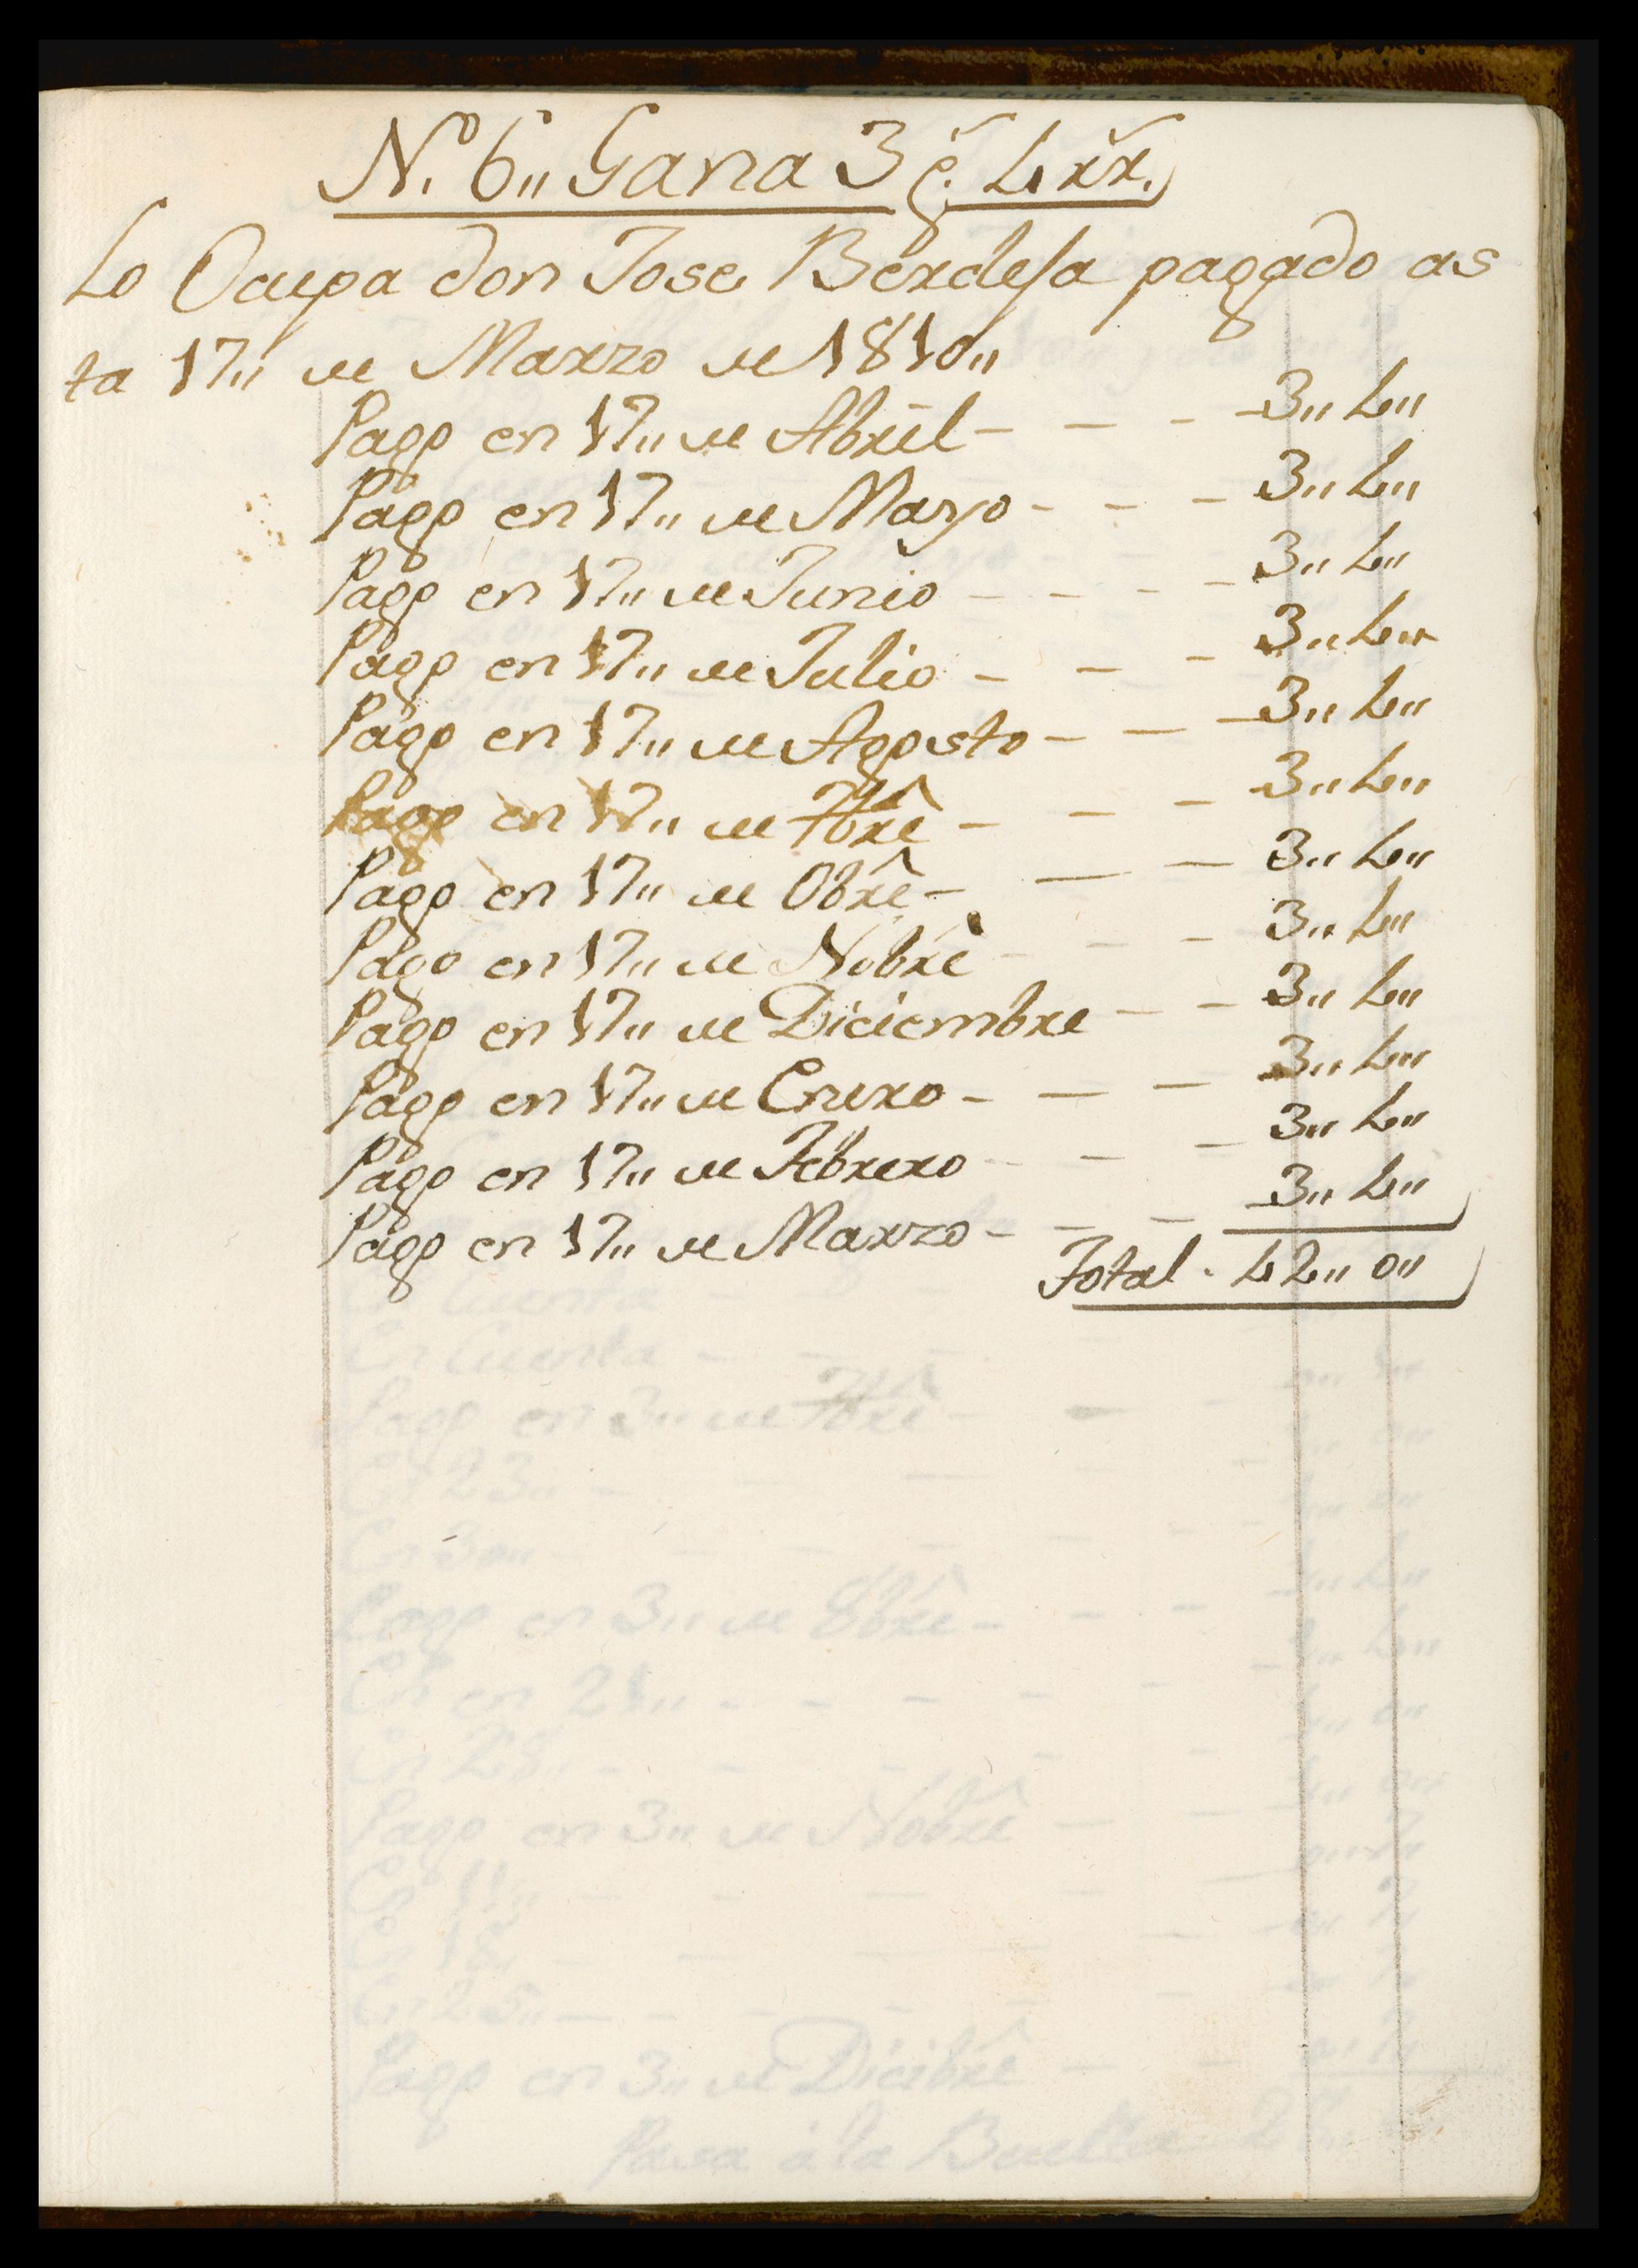 Nº 6,, Gana 3 p.̃ 4 rr̃.
Lo Ocupa don Jose Berdeja pagado as
ta 17,, de Marzo de 1810,,
Pagó en 17,, de Abril - - - 3,, 4,,
Pagó en 17,, de Mayo - - - 3,, 4,,
Pagó en 17,, de Junio - - - - 3,, 4,,
Pagó en 17,, de Julio - - - 3,, 4,,
Pagó en 17,, de Agosto - - - 3,, 4,,
Pagó en 17,, de 7brê - - - 3,, 4,,
Pagó en 17,, de Obrê - - - 3,, 4,,
Pagó en 17,, de Nobrê - - - 3,, 4,,
Pagó en 17,, de Diciembre - - 3,, 4,,
Pagó en 17,, de Enero - - - 3,, 4,,
Pagó en 17,, de Febrero - - - 3,, 4,,
Pagó en 17,, de Marzo - - - 3,, 4,,
Total . 42,, 0,,